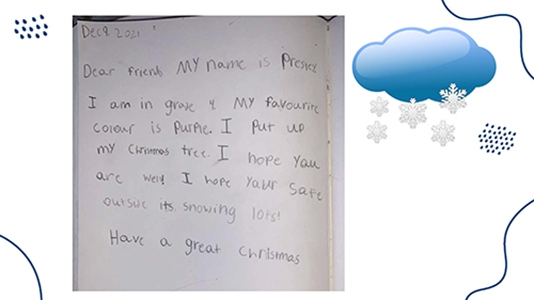 Dec 9 2021
Dear friend MY name is
I am in grave 4 MY favourite
colour is Purple. I Put up
my Christmas tree. I hope you
are well I hope Your Safe
outsie its snowing lots!
Have a great Christmas